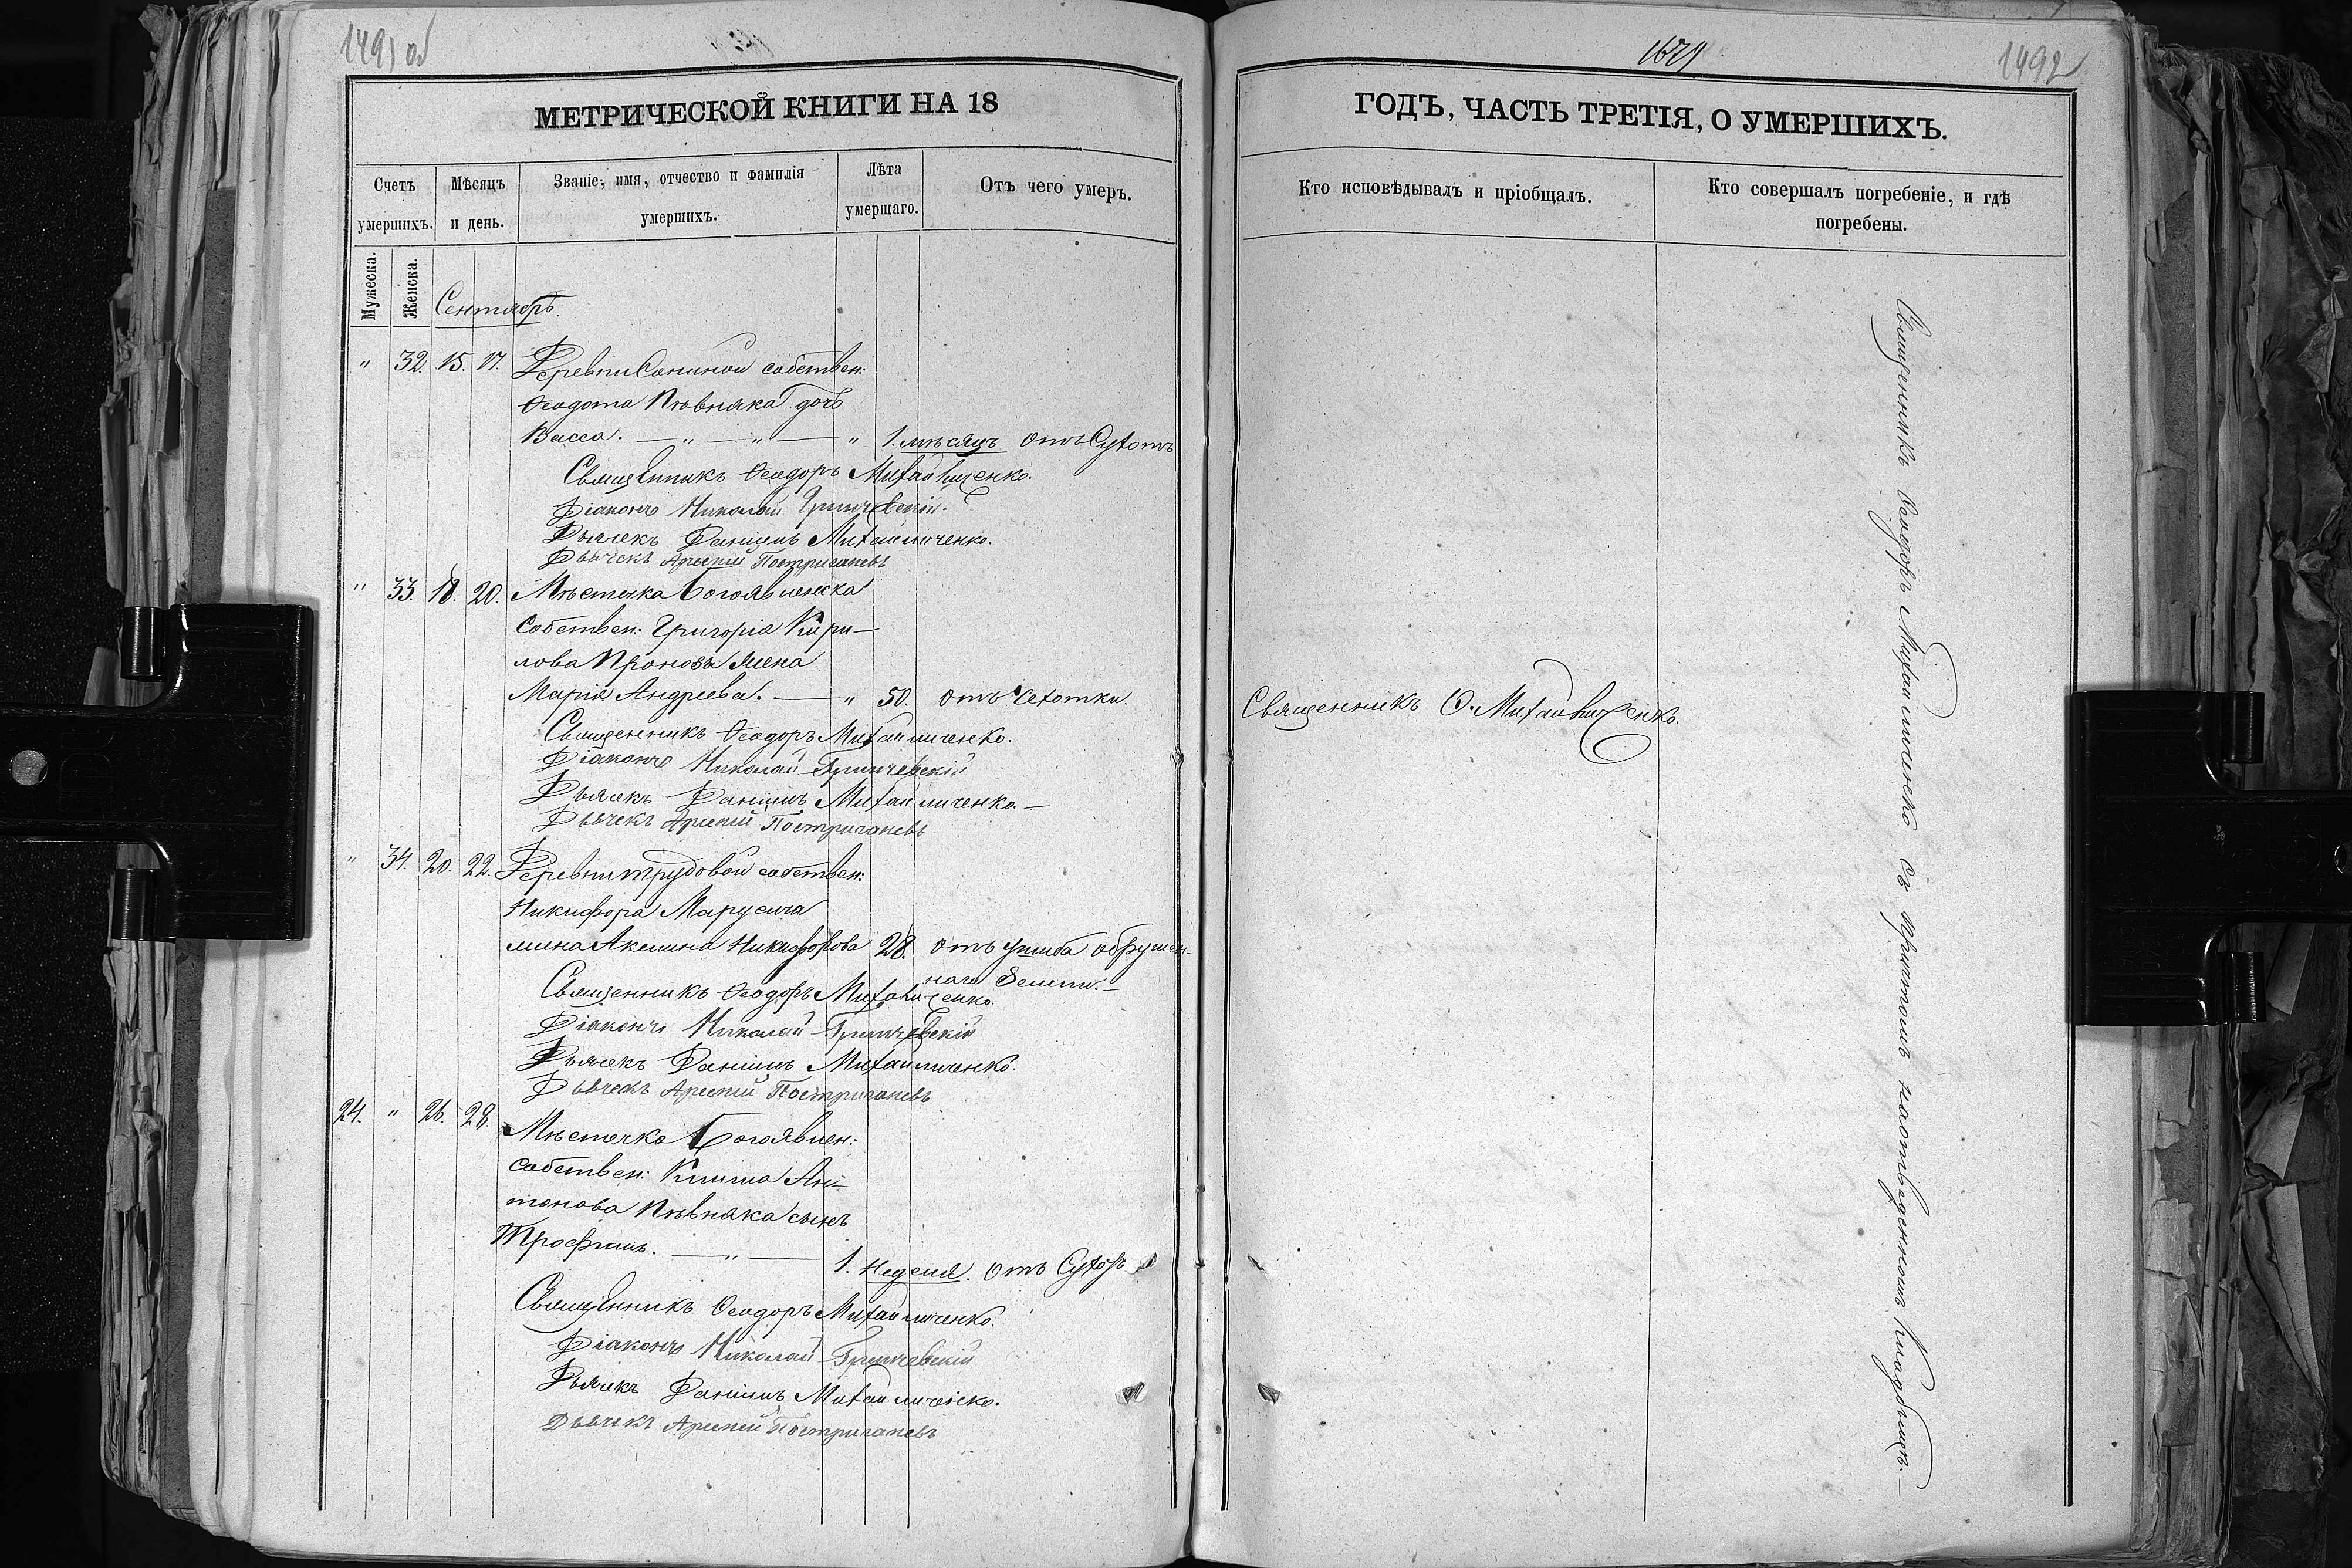 1491 об
МЕТРИЧЕСКОЙ КНИГИ НА 18
Счетъ умершихъ.
Мѣсяцъ и день.
Званіе, имя, отчество и фамилія умершихъ.
Лѣта умершаго.
Отъ чего умеръ.
Мужеска.
Женска.
Сентябрь.
" 32. 15. 17. Деревни Сониной собствен:
Ѳеодота Пѣвняка дочь
Васса. — " — " — " 1. мѣсяцъ отъ Сухотъ
Священникъ Ѳеодоръ Михайличенко.
Діаконъ Николай Гринчевскій.
Дьячекъ Даніилъ Михайличенко.
Дьячекъ Арсеній Постригачевъ
" 33. 18. 20. Мѣстечка Богоявленска
собствен: Григорія Кири-
лова Пронозы жена
Марія Андреева. — " 50. отъ Чехотки.
Священникъ Ѳеодоръ Михайличенко.
Діаконъ Николай Гринчевскій
Дьячекъ Даніилъ Михайличенко. —
Дьячекъ Арсеній Постригачевъ
" 34. 20. 22. Деревни Трудовой собствен:
Никифора Марусича
жена Акилина Никифорова 28. отъ ушиба обрушен-
наго Земли. —
Священникъ Ѳеодоръ Михайличенко.
Діаконъ Николай Гринчевскій
Дьячекъ Даніилъ Михайличенко.
Дьячекъ Арсеній Постригачевъ
24. " 26. 28. Мѣстечка Богоявлен:
собствен: Клима Ан-
тонова Пѣвняка сынъ
Трофимъ. — " — 1. Неделя. отъ Сухотъ
Священникъ Ѳеодоръ Михайличенко.
Діаконъ Николай Гринчевскій
Дьячекъ Даніилъ Михайличенко.
Дьячекъ Арсеній Постригачевъ
1879
1492
ГОДЪ, ЧАСТЬ ТРЕТІЯ, О УМЕРШИХЪ.
Кто исповѣдывалъ и пріобщалъ.
Кто совершалъ погребеніе, и гдѣ погребены.
Священникъ Ѳ. Михайличенко.
Священникъ Ѳеодоръ Михайличенко съ причтомъ на отведенномъ кладбищѣ. —